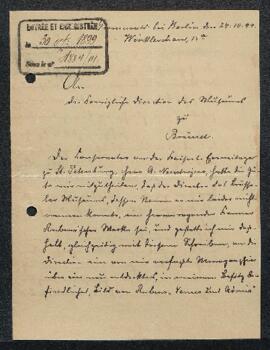 ENTRÉE ET ENREGISTRÉE
le 30 oct. 1899
bei Berlin den 24.10.99
An
die Königliche Direction des Museums
zu
Brüssel
Der Conservator an der Kaiserl. Eremitage
zu St. Petersburg, Herr A. hatte die Güte
mir mitzutheilen, daß der Director des Brüsseler
Museums, dessen Namen er mir leider nicht
nennen konnte, ein hervorragender Kenner
Rubens'scher Werke sei, und gestatte ich mir deshalb,
gleichzeitig mit diesem Schreiben, an die
Direction ein von mir verfaßte Monographie
über ein neu entdecktes, in meinem Besitz befindliches,
Bild von Rubens, "Venus und Adonis"